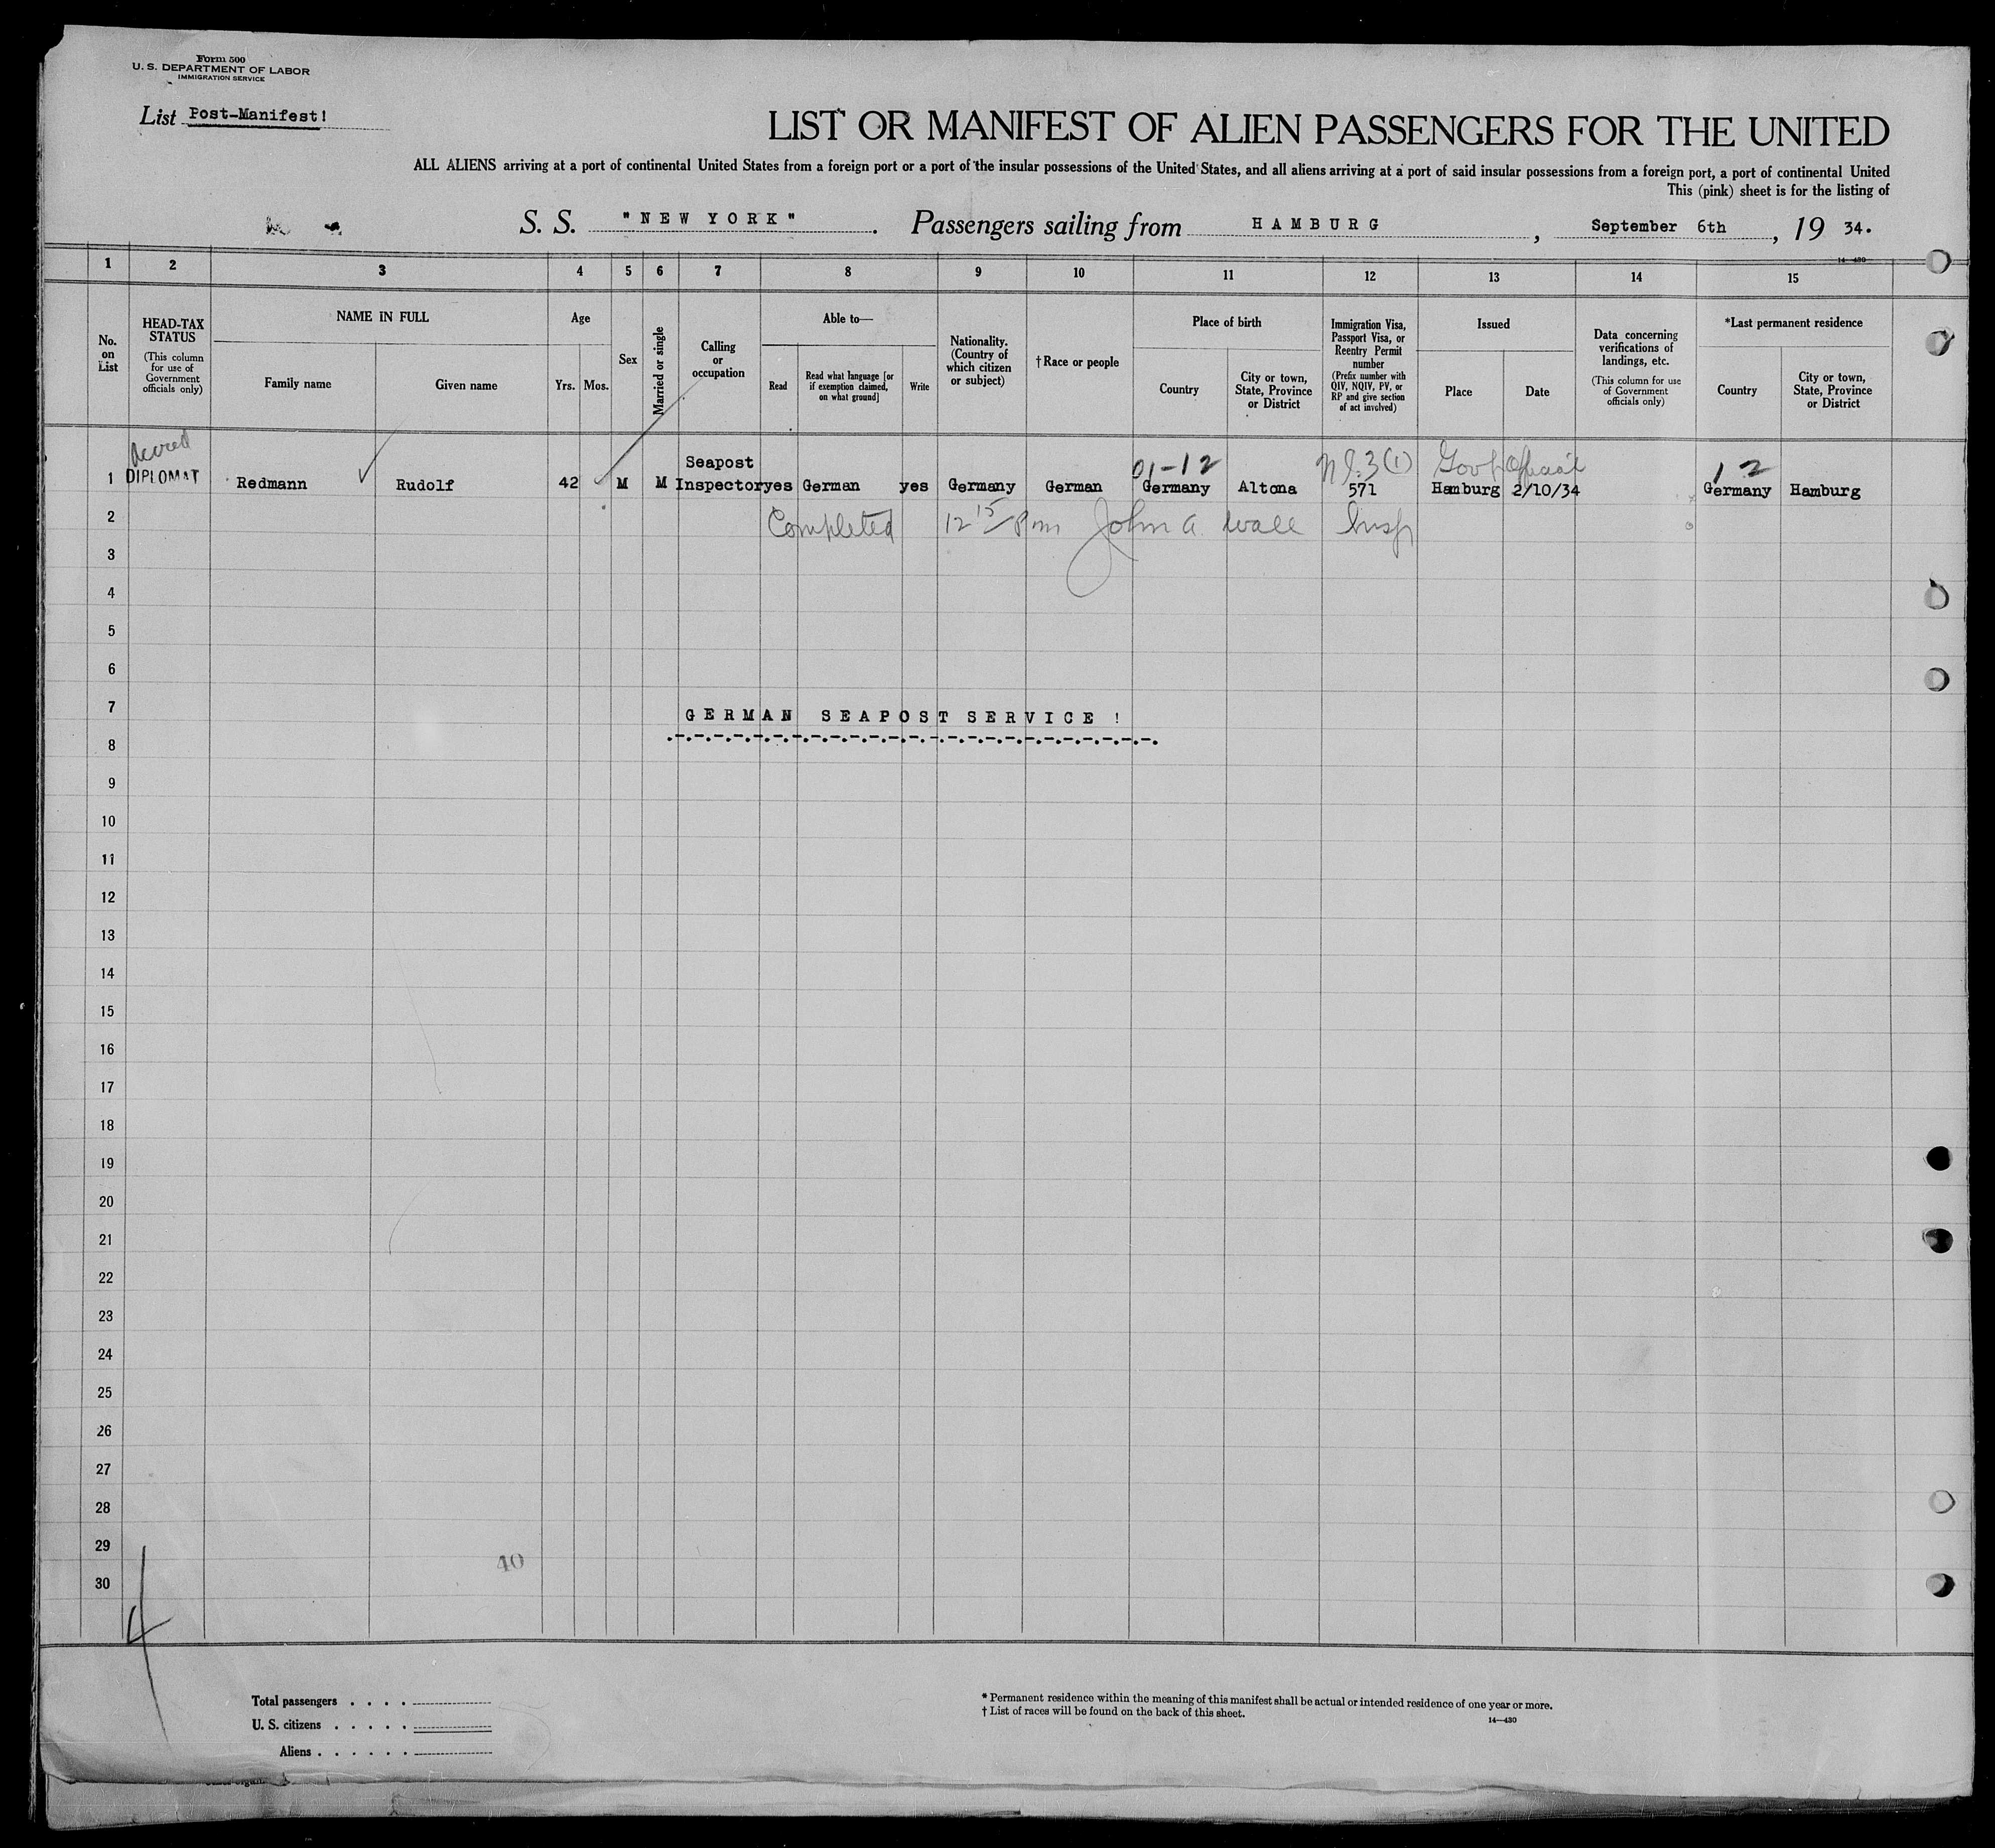 Form 500
U. S. DEPARTMENT OF LABOR
IMMIGRATION SERVICE
List Post-Manifest!
LIST OR MANIFEST OF ALIEN PASSENGERS FOR THE UNITED
ALL ALIENS arriving at a port of continental United States from a foreign port or a port of the insular possessions of the United States, and all aliens arriving at a port of said insular possessions from a foreign port, a port of continental United
This (pink) sheet is for the listing of
S. S. "NEW YORK". Passengers sailing from HAMBURG, September 6th, 19 34.
14—430
1 2 3 4 5 6 7 8 9 10 11 12 13 14 15
No. on List
HEAD-TAX STATUS
(This column for use of Government officials only)
NAME IN FULL
Family name
Given name
Age
Yrs. Mos.
Sex
Married or single
Calling or occupation
Able to—
Read
Read what language [or if exemption claimed, on what ground]
Write
Nationality. (Country of which citizen or subject)
†Race or people
Place of birth
Country
City or town, State, Province or District
Immigration Visa, Passport Visa, or Reentry Permit number
(Prefix number with QIV, NQIV, PV, or RP and give section of act involved)
Issued
Place
Date
Data concerning verifications of landings, etc.
(This column for use of Government officials only)
*Last permanent residence
Country
City or town, State, Province or District
Seapost 01-12 3(1) Govt Official 12
1 DIPLOMAT Redmann Rudolf 42 M M Inspector yes German yes Germany German Germany Altona 571 Hamburg 2/10/34 Germany Hamburg
2 Completed 12 15 Pm John A. Wall Insp
3
4
5
6
7 GERMAN SEAPOST SERVICE !
8
9
10
11
12
13
14
15
16
17
18
19
20
21
22
23
24
25
26
27
28
29
40
30
4
Total passengers . . . .
U. S. citizens . . . . .
Aliens . . . . . .
* Permanent residence within the meaning of this manifest shall be actual or intended residence of one year or more.
† List of races will be found on the back of this sheet.
14—430